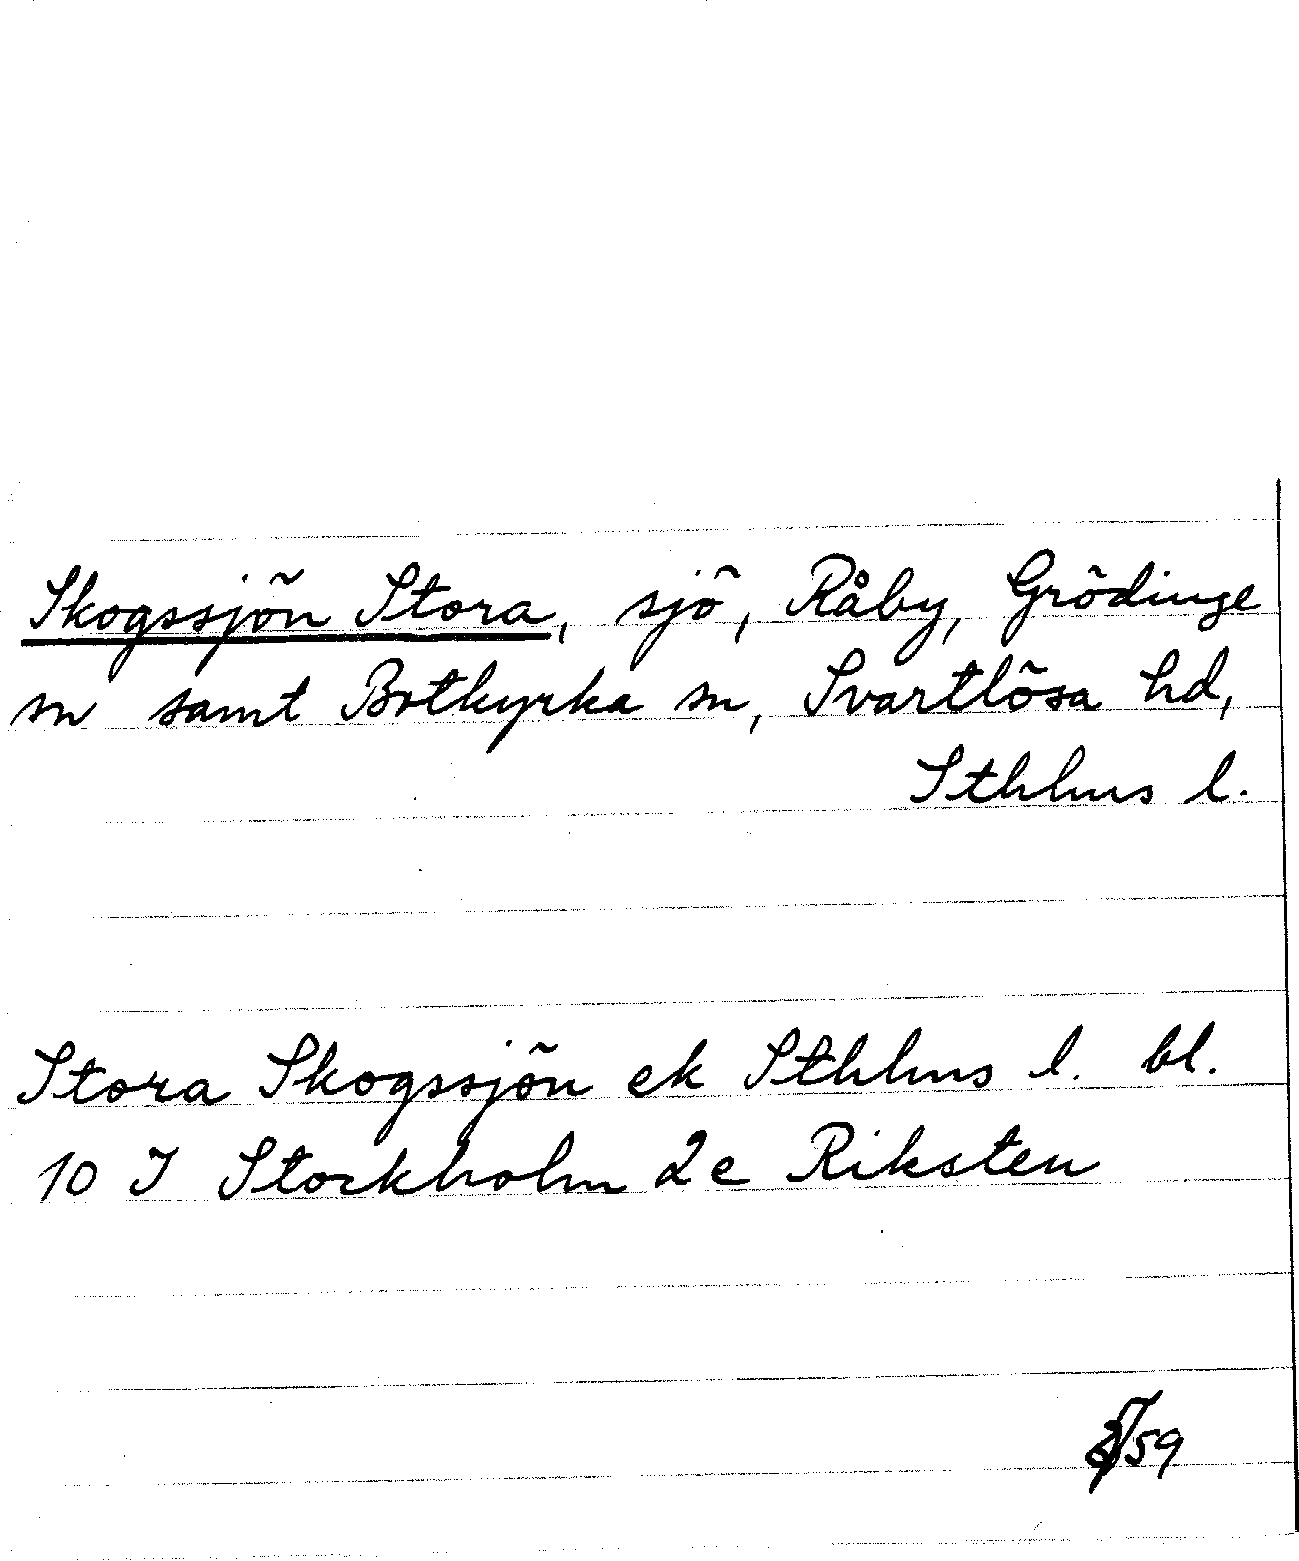 Skogssjön Stora, sjö, Råby, Grödinge
sn samt Botkyrka sn, Svartlösa hd,
Sthlms l.
Stora Skogssjön ek Sthlms l. bl.
10 I Stockholm 2e Riksten
/59